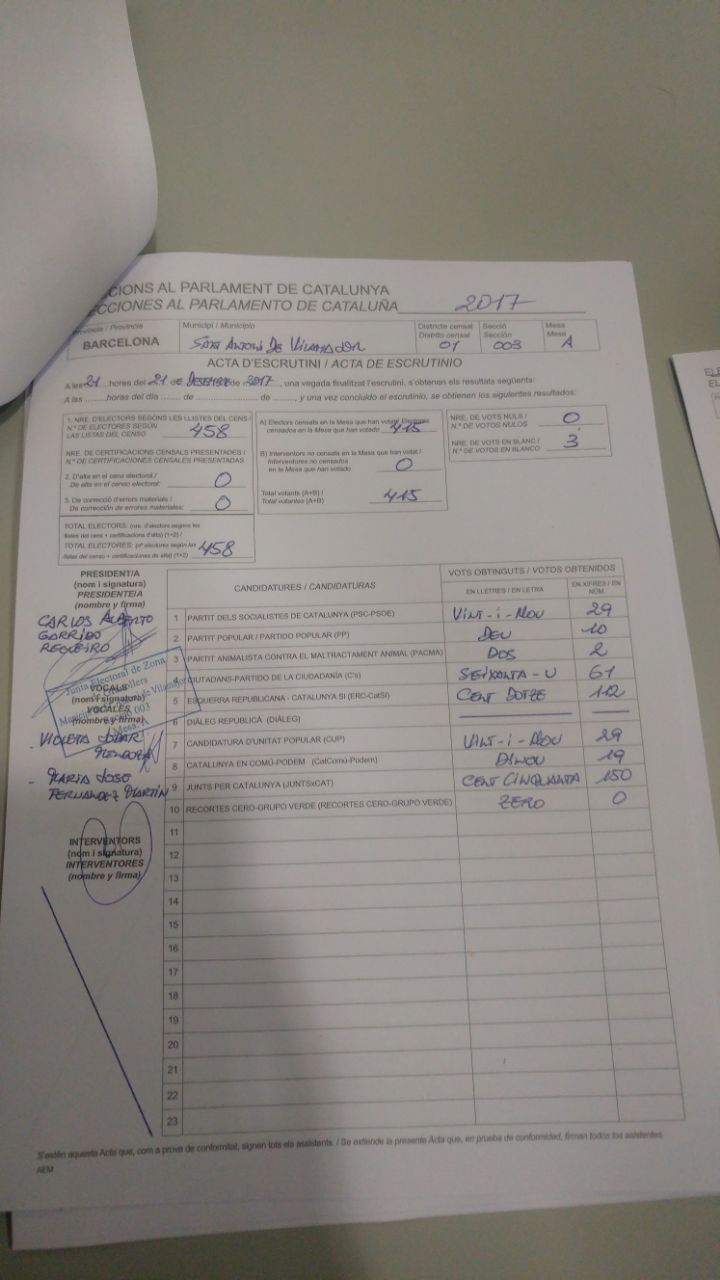 CIONS AL PARLAMENT DE CATALUNYA
ECCIONES AL PARLAMENTO DE CATALUÑA 2017
Provincia / Província
BARCELONA
Municipi / Municipio
SANT ANTONI DE VILAMAJOR
Districte censal
Distrito censal
01
Secció
Sección
003
Mesa
Mesa
A
ACTA D'ESCRUTINI / ACTA DE ESCRUTINIO
A les 21 hores del 21 de DESEMBRE de 2017, una vegada finalitzat l'escrutini, s'obtenen els resultats següents:
A las ........ horas del día ...... de ............ de ........, y una vez concluido el escrutinio, se obtienen los siguientes resultados:
1. NRE. D'ELECTORS SEGONS LES LLISTES DEL CENS /
N.º DE ELECTORES SEGÚN
LAS LISTAS DEL CENSO 458
NRE. DE CERTIFICACIONS CENSALS PRESENTADES /
N.º DE CERTIFICACIONES CENSALES PRESENTADAS
2. D'alta en el cens electoral /
De alta en el censo electoral: 0
3. De correcció d'errors materials /
De corrección de errores materiales: 0
TOTAL ELECTORS: (nre. d'electors segons les
llistes del cens + certificacions d'alta) (1+2) /
TOTAL ELECTORES: (nº electores según las
listas del censo + certificaciones de alta) (1+2) 458
A) Electors censats en la Mesa que han votat / Electores
censados en la Mesa que han votado 415
B) Interventors no censats en la Mesa que han votat /
Interventores no censados
en la Mesa que han votado 0
Total votants (A+B) /
Total votantes (A+B) 415
NRE. DE VOTS NULS /
N.º DE VOTOS NULOS 0
NRE. DE VOTS EN BLANC /
N.º DE VOTOS EN BLANCO 3
PRESIDENT/A
(nom i signatura)
PRESIDENTE/A
(nombre y firma)
CARLOS ALBERTO
GARRIDO
REQUEIRO
Junta Electoral de Zona
VOCALS
(nom i signatura)
VOCALES
(nombre y firma)
de Vilamajor
003
Mesa
VIOLETA
MARIA JOSE
FERNANDEZ MARTIN
INTERVENTORS
(nom i signatura)
INTERVENTORES
(nombre y firma)
CANDIDATURES / CANDIDATURAS
VOTS OBTINGUTS / VOTOS OBTENIDOS
EN LLETRES / EN LETRA
EN XIFRES / EN NÚM.
1 PARTIT DELS SOCIALISTES DE CATALUNYA (PSC-PSOE) VINT-i-NOU 29
2 PARTIT POPULAR / PARTIDO POPULAR (PP) DEU 10
3 PARTIT ANIMALISTA CONTRA EL MALTRACTAMENT ANIMAL (PACMA) DOS 2
4 CIUTADANS-PARTIDO DE LA CIUDADANÍA (C's) SEIXANTA-U 61
5 ESQUERRA REPUBLICANA - CATALUNYA SI (ERC-CatSI) CENT DOTZE 112
6 DIÀLEG REPUBLICÀ (DIÀLEG)
7 CANDIDATURA D'UNITAT POPULAR (CUP) VINT-i-NOU 29
8 CATALUNYA EN COMÚ-PODEM (CatComú-Podem) DINOU 19
9 JUNTS PER CATALUNYA (JUNTSxCAT) CENT CINQUANTA 150
10 RECORTES CERO-GRUPO VERDE (RECORTES CERO-GRUPO VERDE) ZERO 0
11
12
13
14
15
16
17
18
19
20
21
22
23
S'estén aquesta Acta que, com a prova de conformitat, signen tots els assistents. / Se extiende la presente Acta que, en prueba de conformidad, firman todos los asistentes.
AEM